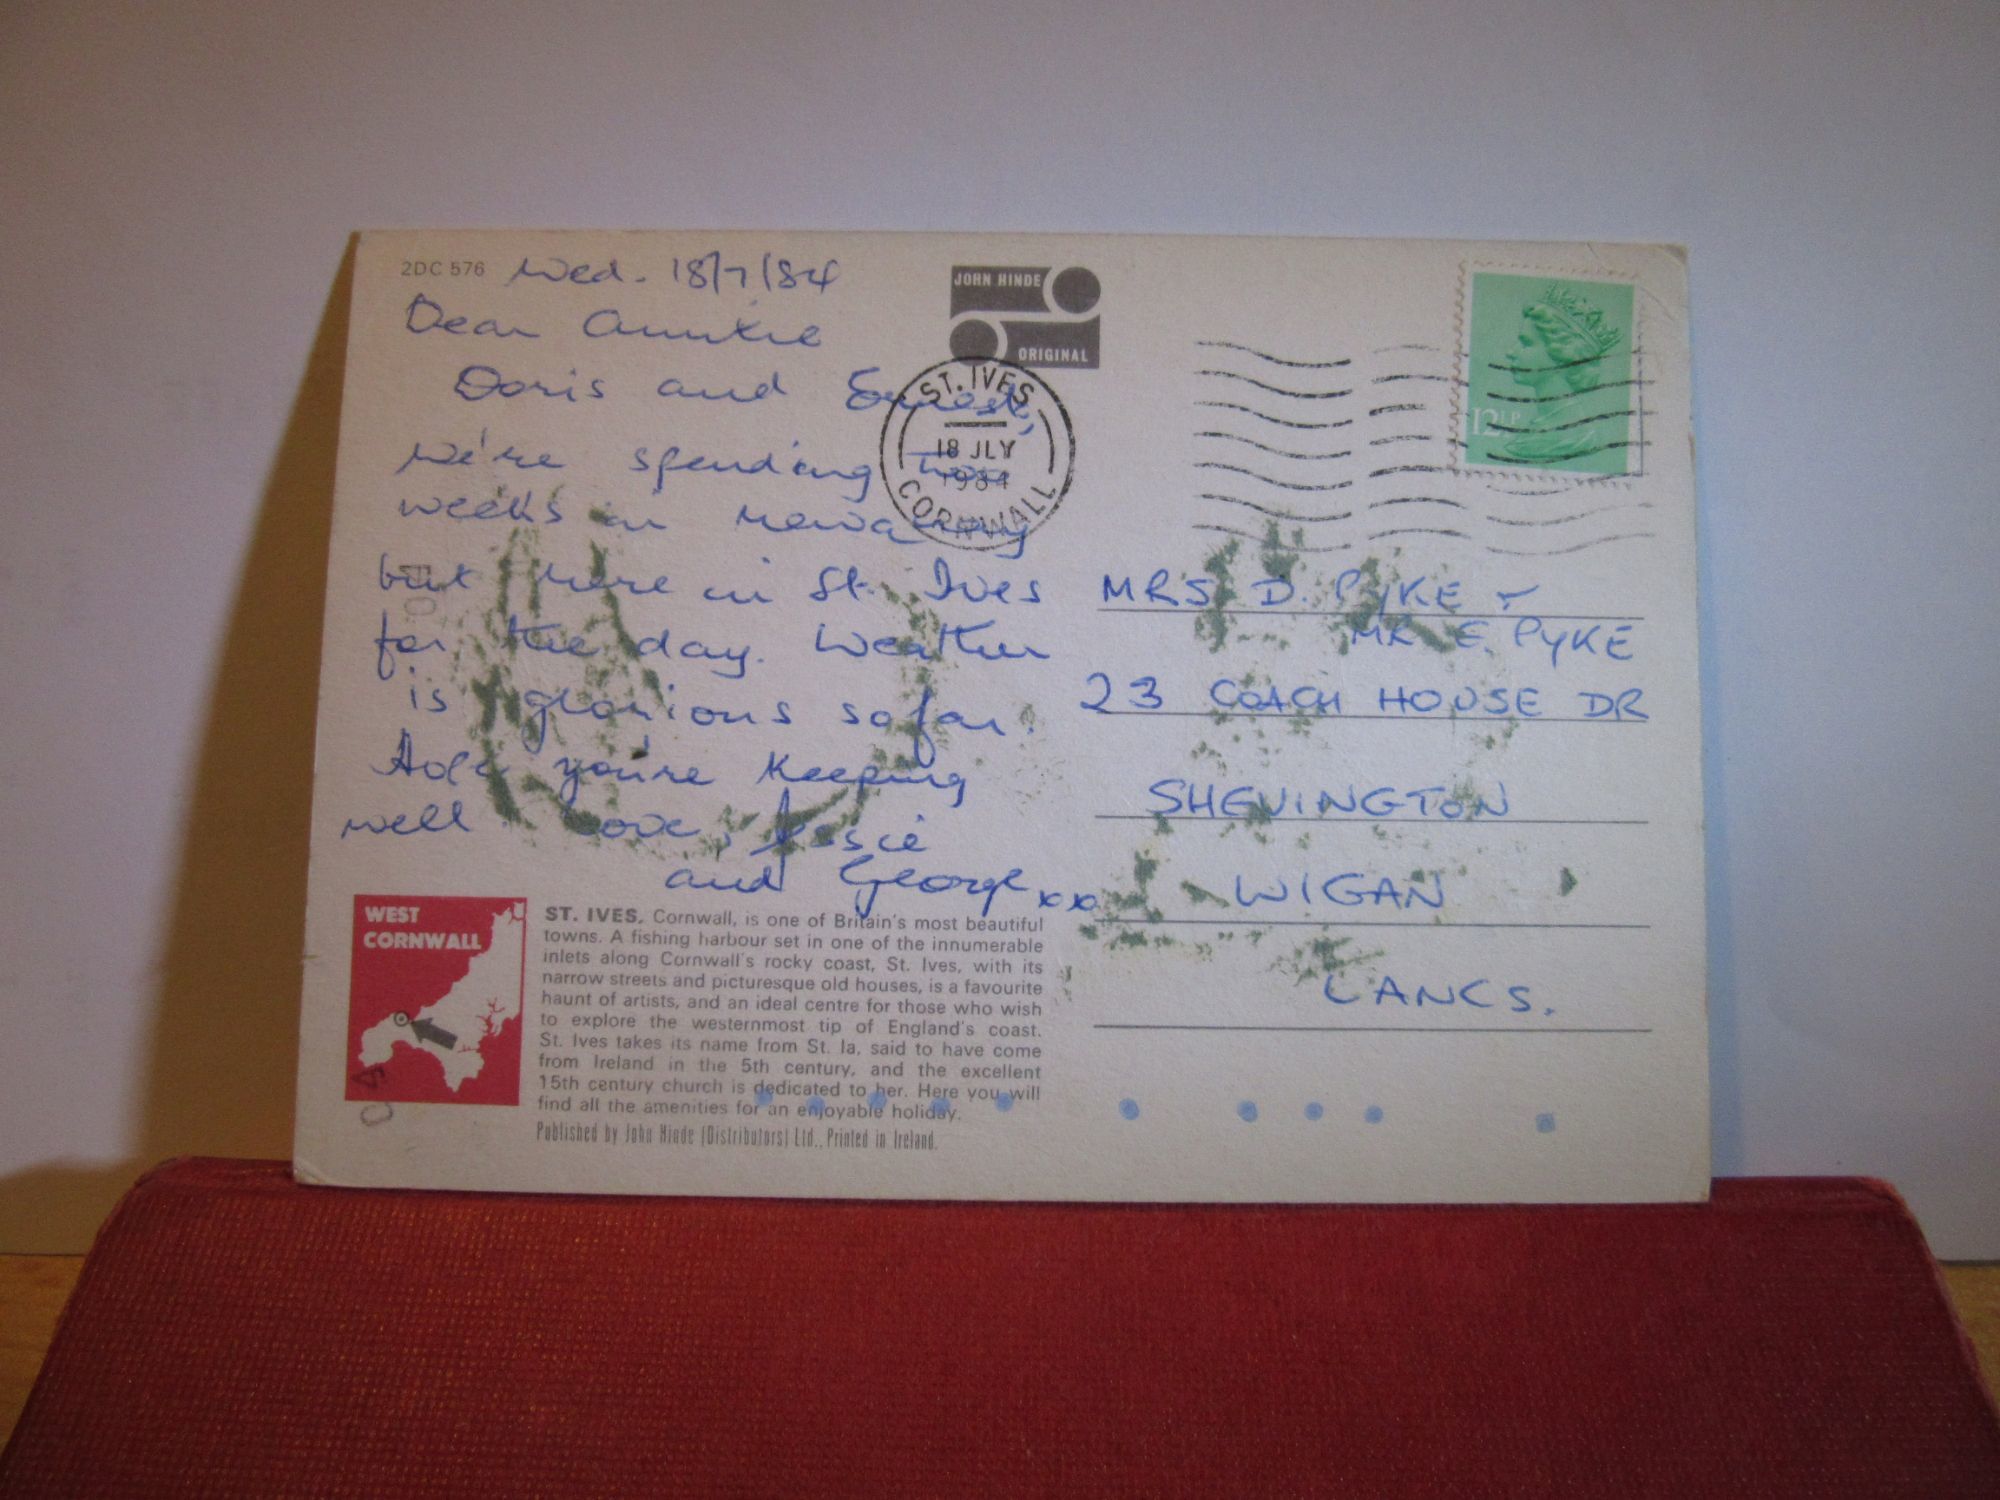 2DC 576
Wed. 18/7/84
Dear Auntie
Doris and Ernest,
we're spending two
weeks in Newquay
but here in St. Ives
for the day. Weather
is glorious so far.
Hope you're keeping
well. Love, Josie
and George xx
JOHN HINDE
ORIGINAL
ST. IVES
18 JLY
1984
CORNWALL
12½P
MRS D. PYKE +
MR E. PYKE
23 COACH HOUSE DR
SHEVINGTON
WIGAN
LANCS.
WEST
CORNWALL
ST. IVES, Cornwall, is one of Britain's most beautiful
towns. A fishing harbour set in one of the innumerable
inlets along Cornwall's rocky coast, St. Ives, with its
narrow streets and picturesque old houses, is a favourite
haunt of artists, and an ideal centre for those who wish
to explore the westernmost tip of England's coast.
St. Ives takes its name from St. Ia, said to have come
from Ireland in the 5th century, and the excellent
15th century church is dedicated to her. Here you will
find all the amenities for an enjoyable holiday.
Published by John Hinde (Distributors) Ltd., Printed in Ireland.